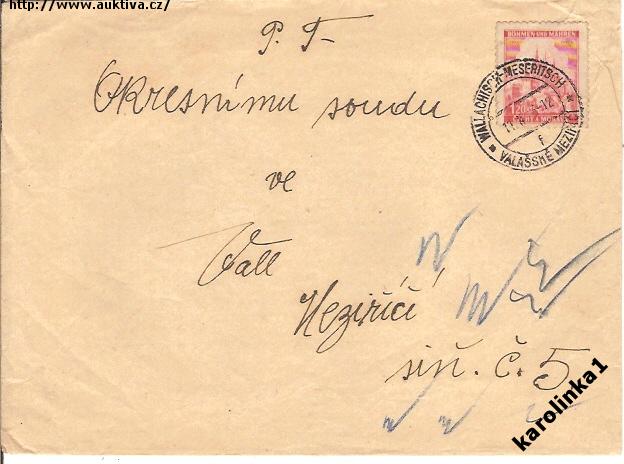 http://www.auktiva.cz/
P. T.
BÖHMEN UND MÄHREN
Okresnímu soudu
WALLACHISCH MESERITSCH
VALAŠSKÉ MEZIŘÍČÍ
ve
Vall
Meziříčí
siň. č. 5
karolinka1